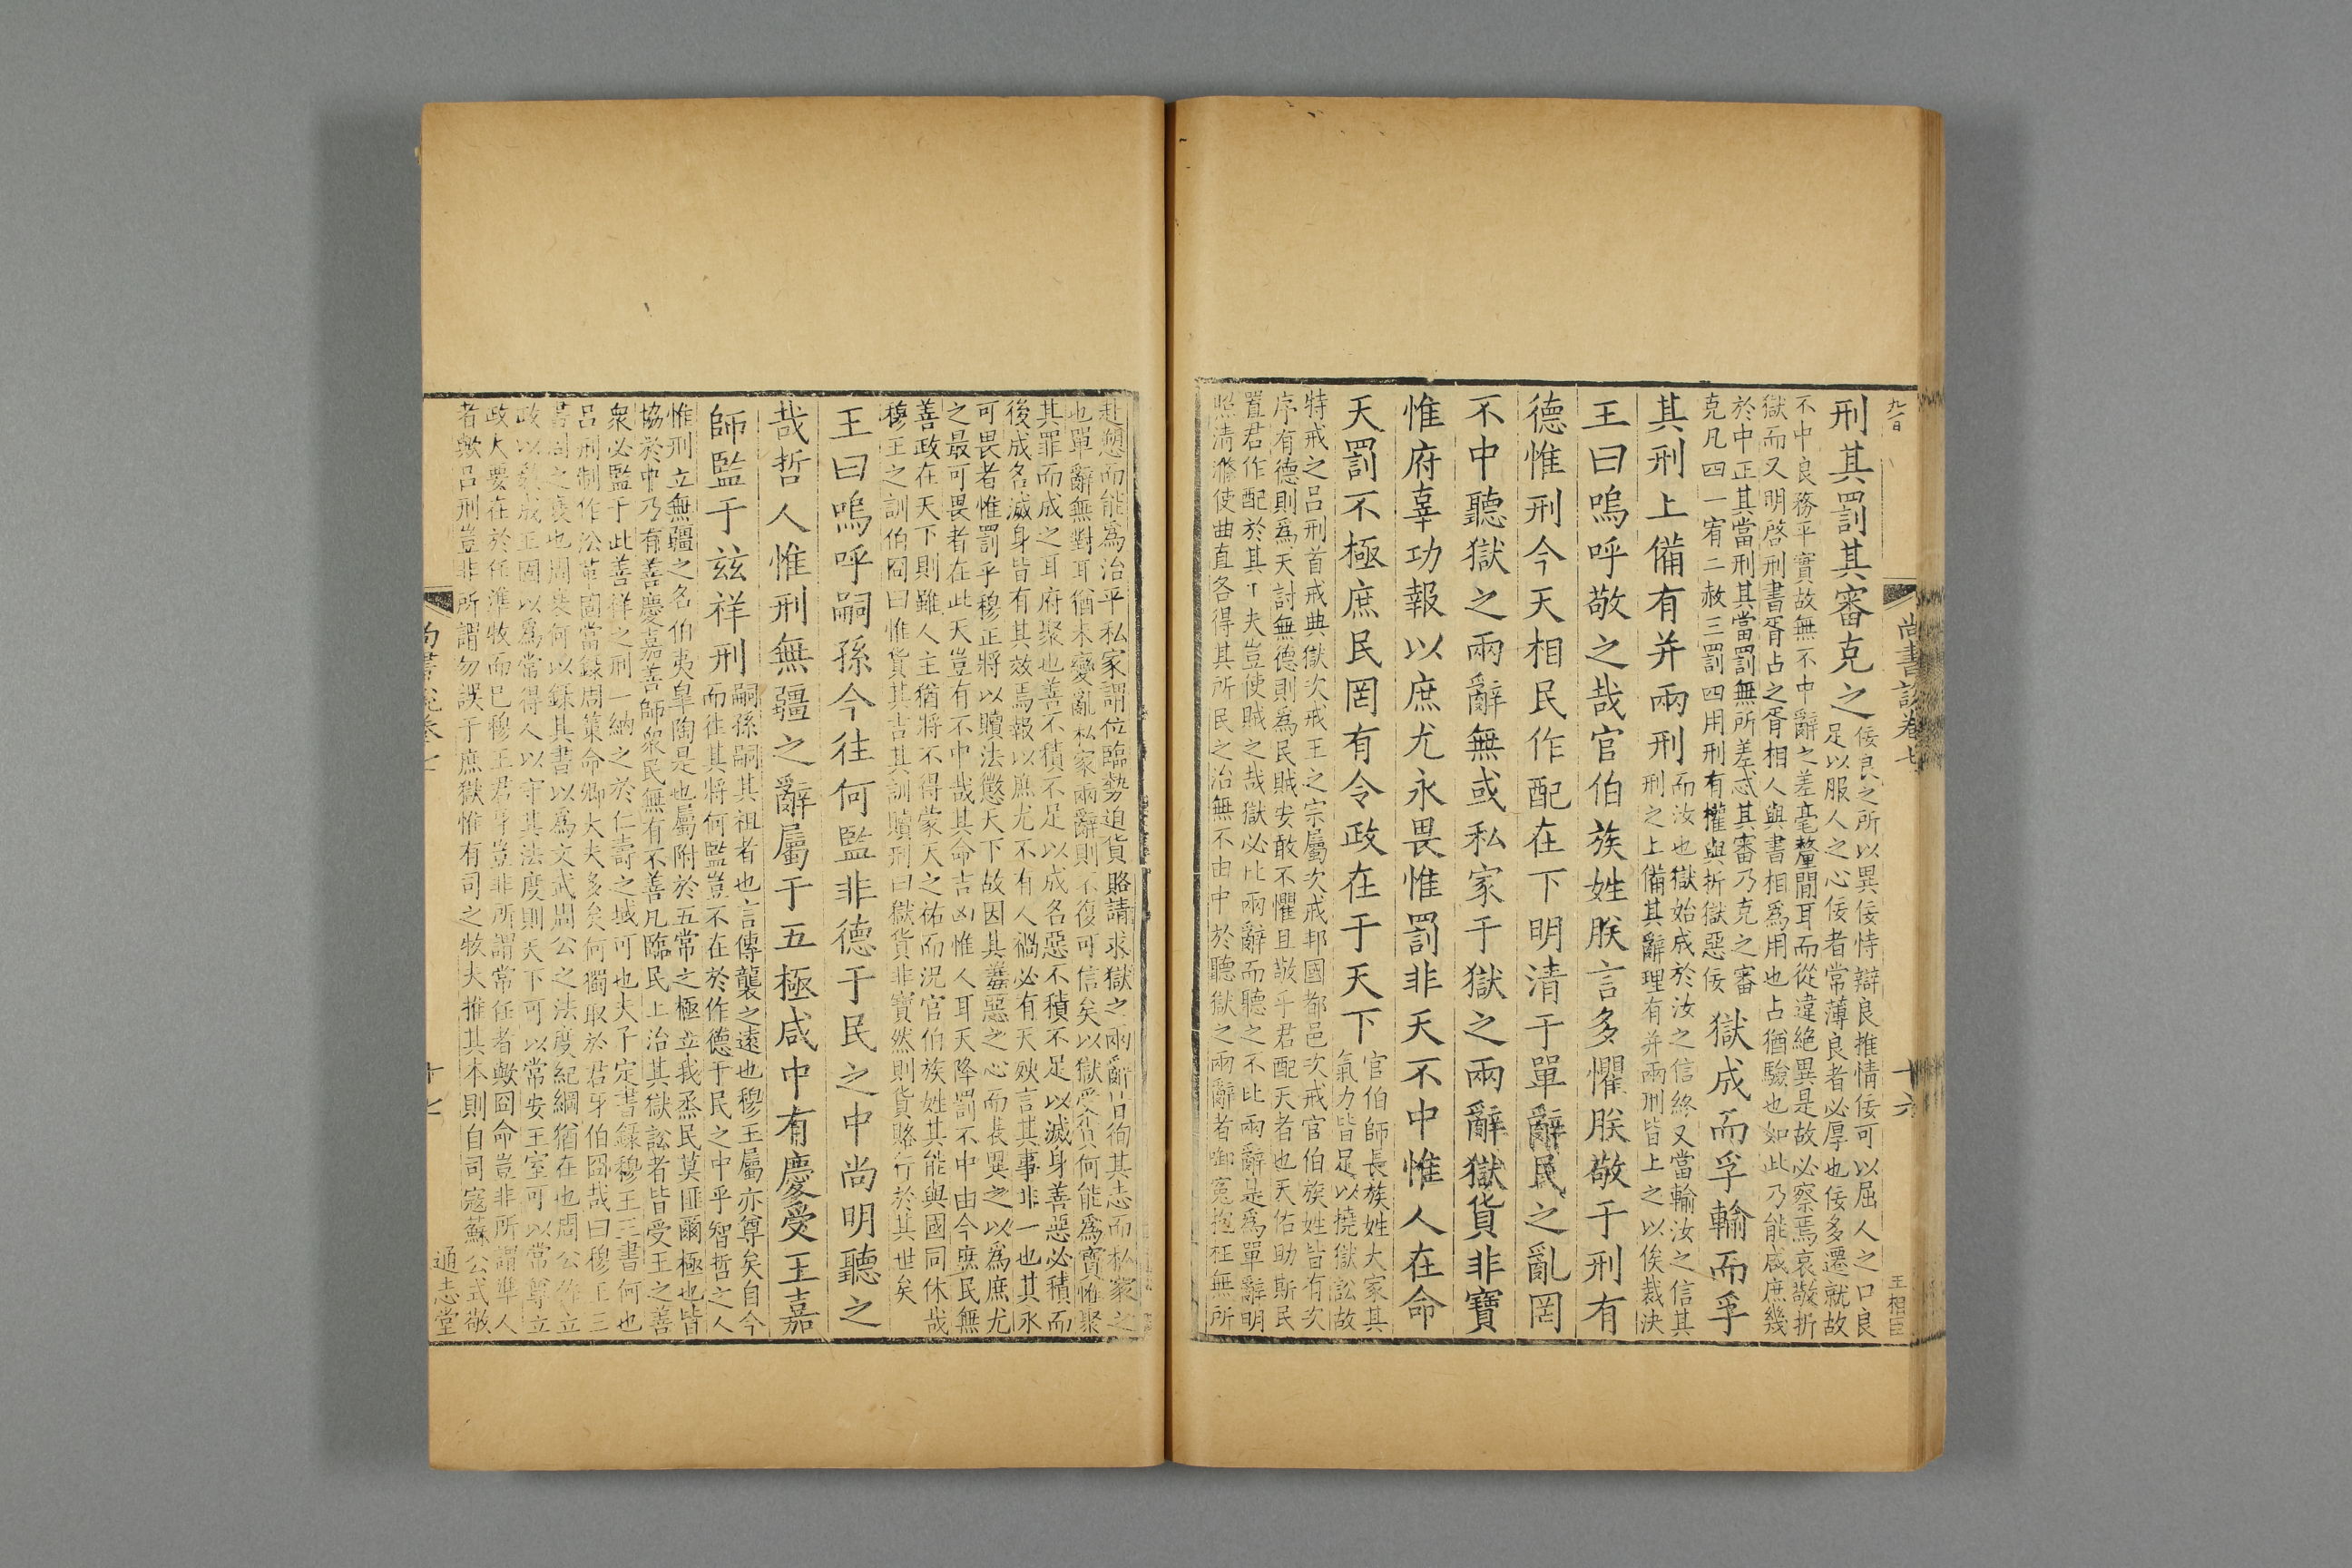 九百
尚書說卷七
十六
王相臣
刑其罰其審克之
佞良之所以異佞恃辯良推情佞可以屈人之口良
足以服人之心佞者常薄良者必厚也佞多遷就故
不中良務平實故無不中辭之差毫釐閒耳而從違絕異是故必察焉哀敬折
獄而又明啓刑書胥占之胥相人與書相為用也占猶驗也如此乃能咸庶幾
於中正其當刑其當罰無所差忒其審乃克之審
克凡四一宥二赦三罰四用刑有權與折獄惡佞
獄成而孚輸而孚
其刑上備有并兩刑
而汝也獄始成於汝之信終又當輸汝之信其
刑之上備其辭理有并兩刑皆上之以俟裁決
王曰嗚呼敬之哉官伯族姓朕言多懼朕敬于刑有
德惟刑今天相民作配在下明清于單辭民之亂罔
不中聽獄之兩辭無或私家于獄之兩辭獄貨非寶
惟府辜功報以庶尤永畏惟罰非天不中惟人在命
天罰不極庶民罔有令政在于天下
官伯師長族姓大家其
氣力皆足以撓獄訟故
特戒之呂刑首戒典獄次戒王之宗屬次戒邦國都邑次戒官伯族姓皆有次
序有德則為天討無德則為民賊安敢不懼且敬乎君配天者也天佑助斯民
置君作配於其下夫豈使賊之哉獄必比兩辭而聽之不比兩辭是為單辭明
照清滌使曲直各得其所民之治無不由中於聽獄之兩辭者卹冤拯枉無所
赴愬而能為治乎私家謂位臨勢迫貨賂請求獄之兩辭皆徇其志而私家之
也單辭無對耳猶未變亂私家兩辭則不復可信矣以獄受貨何能為寶惟聚
其罪而成之耳府聚也善不積不足以成名惡不積不足以滅身善惡必積而
後成名滅身皆有其效焉報以庶尤不有人禍必有天殃言其事非一也其永
可畏者惟罰乎穆正將以贖法懲天下故因其羞惡之心而長異之以為庶尤
之最可畏者在此天豈有不中哉其命吉凶惟人耳天降罰不中由今庶民無
善政在天下則雖人主猶將不得蒙天之祐而況官伯族姓其能與國同休哉
穆王之訓伯冏曰惟貨其吉其訓贖刑曰獄貨非寶然則貨賂行於其世矣
王曰嗚呼嗣孫今往何監非德于民之中尚明聽之
哉哲人惟刑無疆之辭屬于五極咸中有慶受王嘉
師監于茲祥刑
嗣孫嗣其祖者也言傳襲之遠也穆王屬亦尊矣自今
而往其將何監豈不在於作德于民之中乎智哲之人
惟刑立無疆之名伯夷皐陶是也屬附於五常之極立我烝民莫匪爾極也皆
協於中乃有善慶嘉善師眾民無有不善凡臨民上治其獄訟者皆受王之善
眾必監于此善祥之刑一納之於仁壽之域可也夫子定書錄穆王三書何也
呂刑制作沿革固當錄周策命卿大夫多矣何獨取於君牙伯冏哉曰穆王三
書周之衰也周衰何以錄其書以為文武周公之法度紀綱猶在也周公作立
政以敎成王固以為常得人以守其法度則天下可以常安王室可以常尊立
政大要在於任準牧而已穆王君牙豈非所謂常任者歟冏命豈非所謂準人
者歟呂刑豈非所謂勿誤于庶獄惟有司之牧夫推其本則自司寇蘇公式敬
尚書說卷七
十七
通志堂